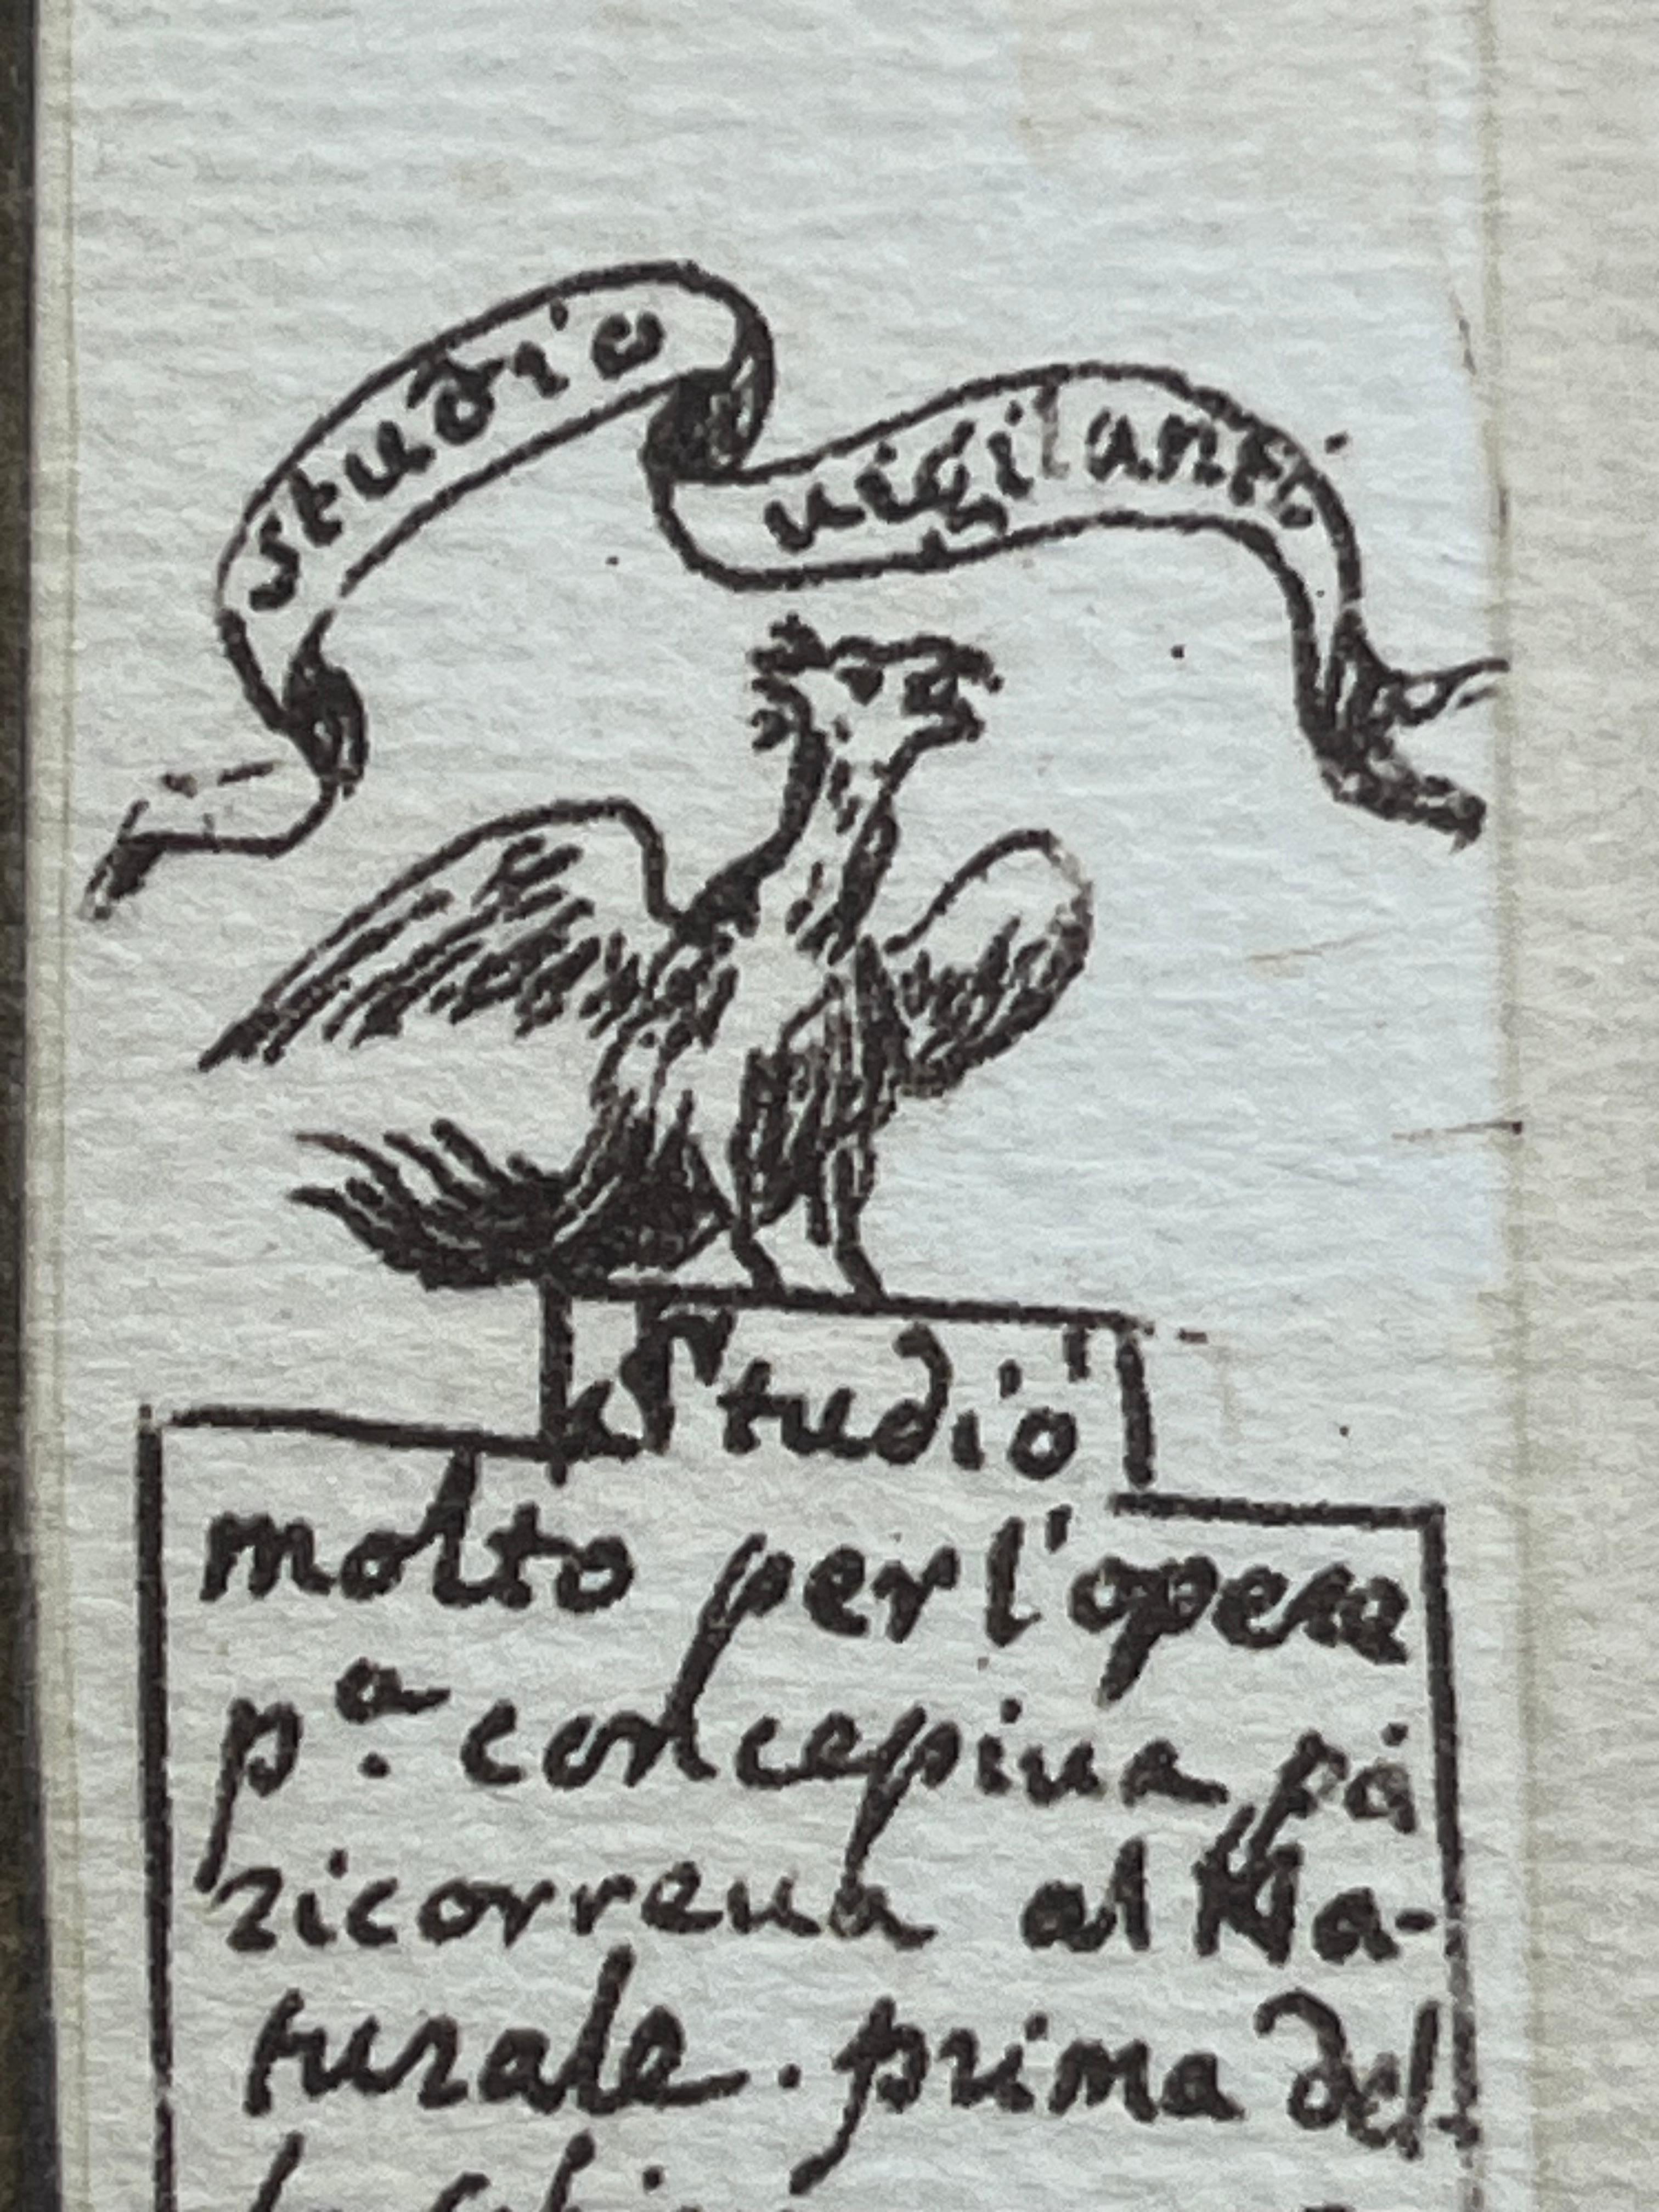 studio uigilanti
studiò
molto per l'opera
pª. concepiua, poi
ricorreua al Na-
turale. prima del-